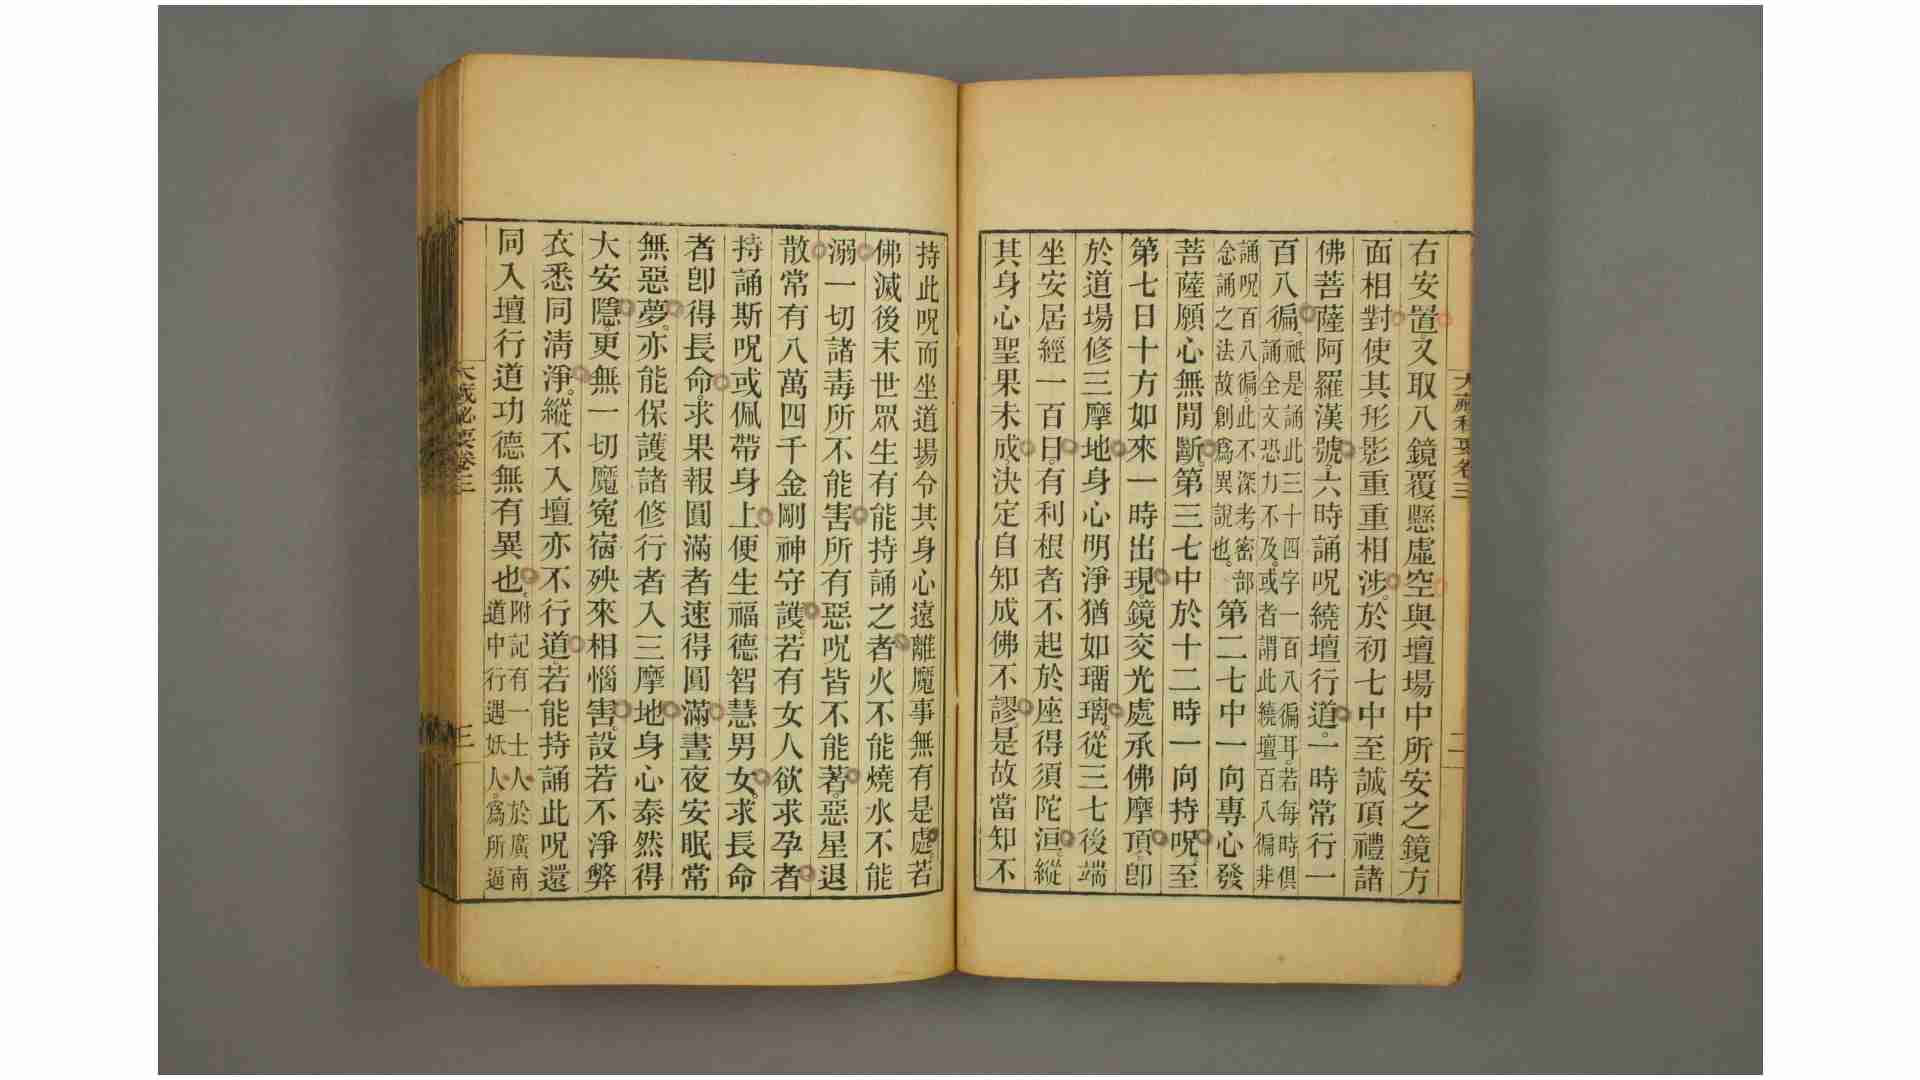 大藏秘要卷三 二
右安置。又取八鏡覆懸虛空與壇場中所安之鏡方
面相對使其形影重重相涉。於初七中至誠頂禮諸
佛菩薩阿羅漢號。六時誦呪繞壇行道。一時常行一
百八徧。祇是誦此三十四字一百八徧耳。若每時俱誦全文恐力不及。或者謂此繞壇百八徧非
誦呪百八徧。此不深考密部念誦之法故創爲異說也。第二七中一向專心發
菩薩願心無閒斷。第三七中於十二時一向持呪。至
第七日十方如來一時出現。鏡交光處承佛摩頂。卽
於道場修三摩地身心明淨猶如瑠璃。從三七後端
坐安居經一百日。有利根者不起於座得須陀洹。縱
其身心聖果未成決定自知成佛不謬。是故當知不
持此呪而坐道場令其身心遠離魔事無有是處。若
佛滅後末世眾生有能持誦之者火不能燒水不能
溺一切諸毒所不能害所有惡呪皆不能著。惡星退
散常有八萬四千金剛神守護。若有女人欲求孕者
持誦斯呪或佩帶身上便生福德智慧男女。求長命
者卽得長命。求果報圓滿者速得圓滿晝夜安眠常
無惡夢。亦能保護諸修行者入三摩地身心泰然得
大安隱。更無一切魔冤宿殃來相惱害。設若不淨弊
衣悉同清淨。縱不入壇亦不行道。若能持誦此呪還
同入壇行道功德無有異也。附記有一士人於廣南道中行遇妖人。爲所逼
大藏秘要卷三 三